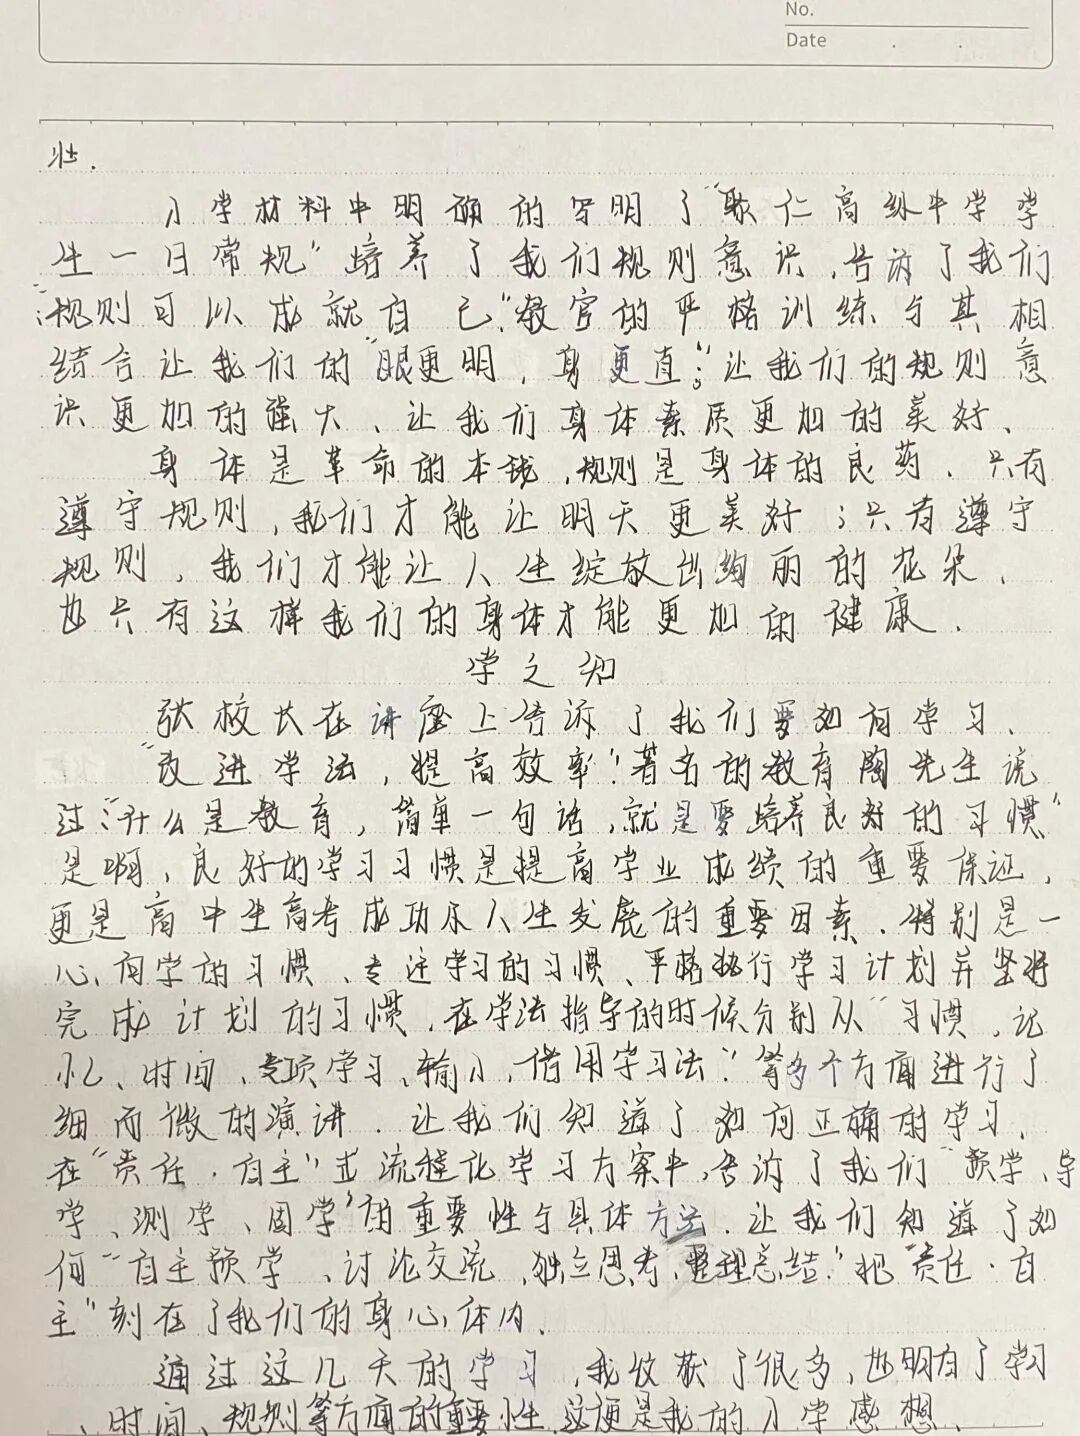 No.
Date
壮.
入学材料中明确的写明了“耿仁高级中学学
生一日常规”培养了我们规则意识,告诉了我们
“规则可以成就自己”,教官的严格训练与其相
结合让我们的“眼更明,身更直;”让我们的规则意
识更加的强大、让我们身体素质更加的美好、
身体是革命的本钱,规则是身体的良药.只有
遵守规则,我们才能让明天更美好;只有遵守
规则,我们才能让人生绽放出绚丽的花朵.
也只有这样我们的身体才能更加的健康.
学之知
张校长在讲座上告诉了我们要如何学习.
“改进学法,提高效率”!著名的教育陶先生说
过:“什么是教育,简单一句话,就是要培养良好的习惯”
是啊,良好的学习习惯是提高学业成绩的重要保证,
更是高中生高考成功及人生发展的重要因素.特别是一
心向学的习惯、专注学习的习惯、严格执行学习计划并坚持
完成计划的习惯.在学法指导的时候分别从“习惯,记
忆、时间、专项学习、输入,借用学习法”等多个方面进行了
细而微的演讲.让我们知道了如何正确的学习.
在“责任·自主”式流程化学习方案中,告诉了我们“预学、导
学、测学、固学”的重要性与具体方法.让我们知道了如
何“自主预学、讨论交流,独立思考,整理总结.”把“责任·自
主”刻在了我们的身心体内.
通过这几天的学习,我收获了很多,也明白了学习
、时间、规则等方面的重要性.这便是我的入学感想.